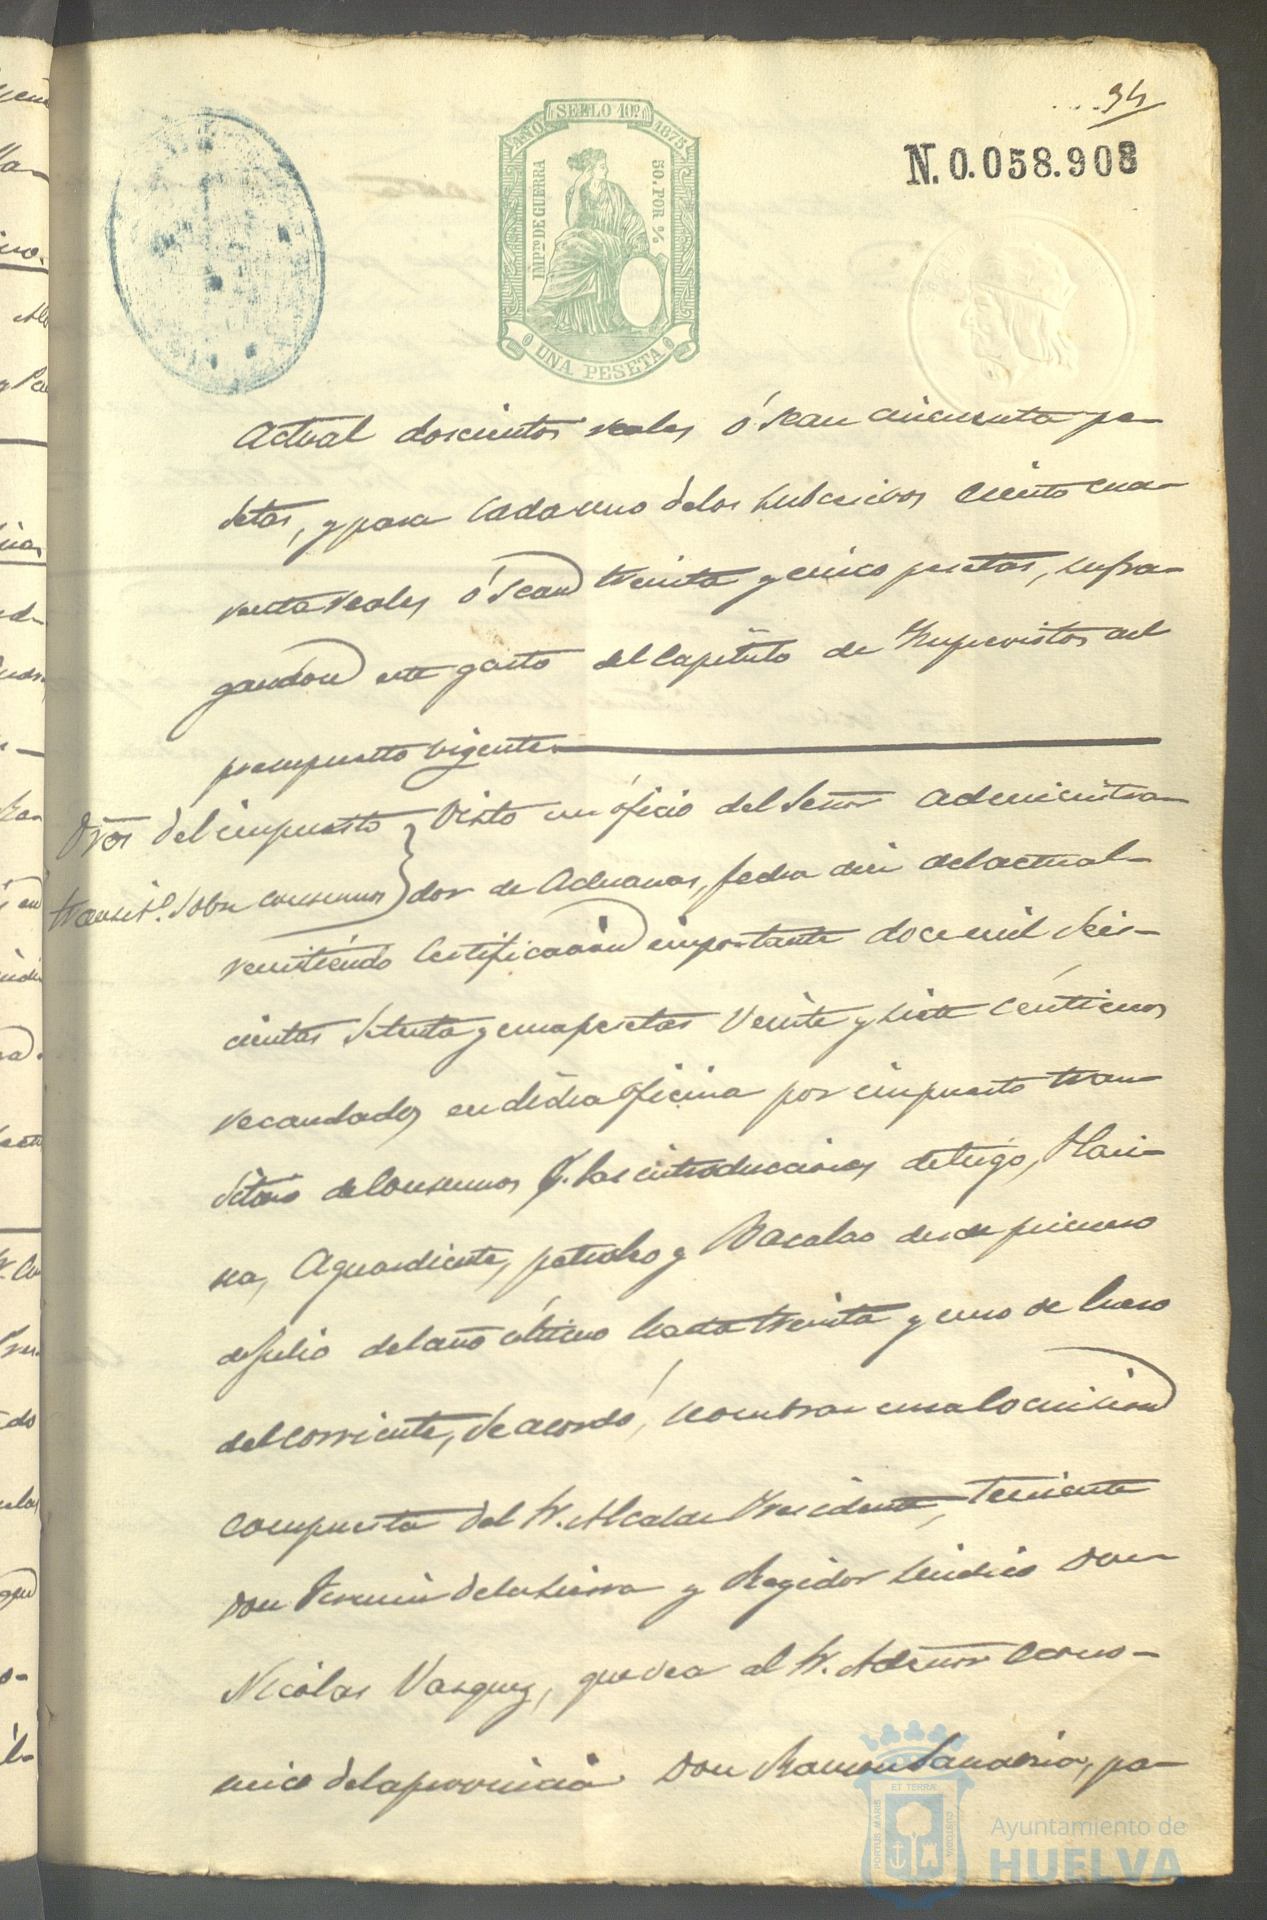 94
N. 0.058.908
AÑO SELLO 10º 1875
IMPTO DE GUERRA
50 POR %
UNA PESETA
actual doscientos reales ó sean cincuenta pe-
setas, y para cada uno de los subcesivos ciento cua-
renta reales ó sean treinta y cinco pesetas, sufra-
gandose este gasto del Capitulo de Imprevistos del
presupuesto vigente.
Dros del impuesto
transitº sobre consumos
Visto un óficio del Señor Administra-
dor de Aduanas, fecha diez del actual
remitiendo Certificacion importante doce mil seis-
cientas setenta y una pesetas veinte y siete céntimos
recaudados en dicha oficina por impuesto tran-
sitorio de Consumos p. las introducciones de trigo, Hari-
na, Aguardiente, petroleo y Bacalao desde primero
de Julio del año último hasta treinta y uno de Enero
del corriente, se acordó, nombrar una Comision
compuesta del Sr. Alcalde Presidente, Teniente
Don Fermin de la Sierra y Regidor Sindico Don
Nicolas Vazquez, que vea al Sr. Admor Econo-
mico de la provincia Don Ramon Sanabria, pa-
PORTUS MARIS
ET TERRÆ
CUSTODIA
Ayuntamiento de
HUELVA